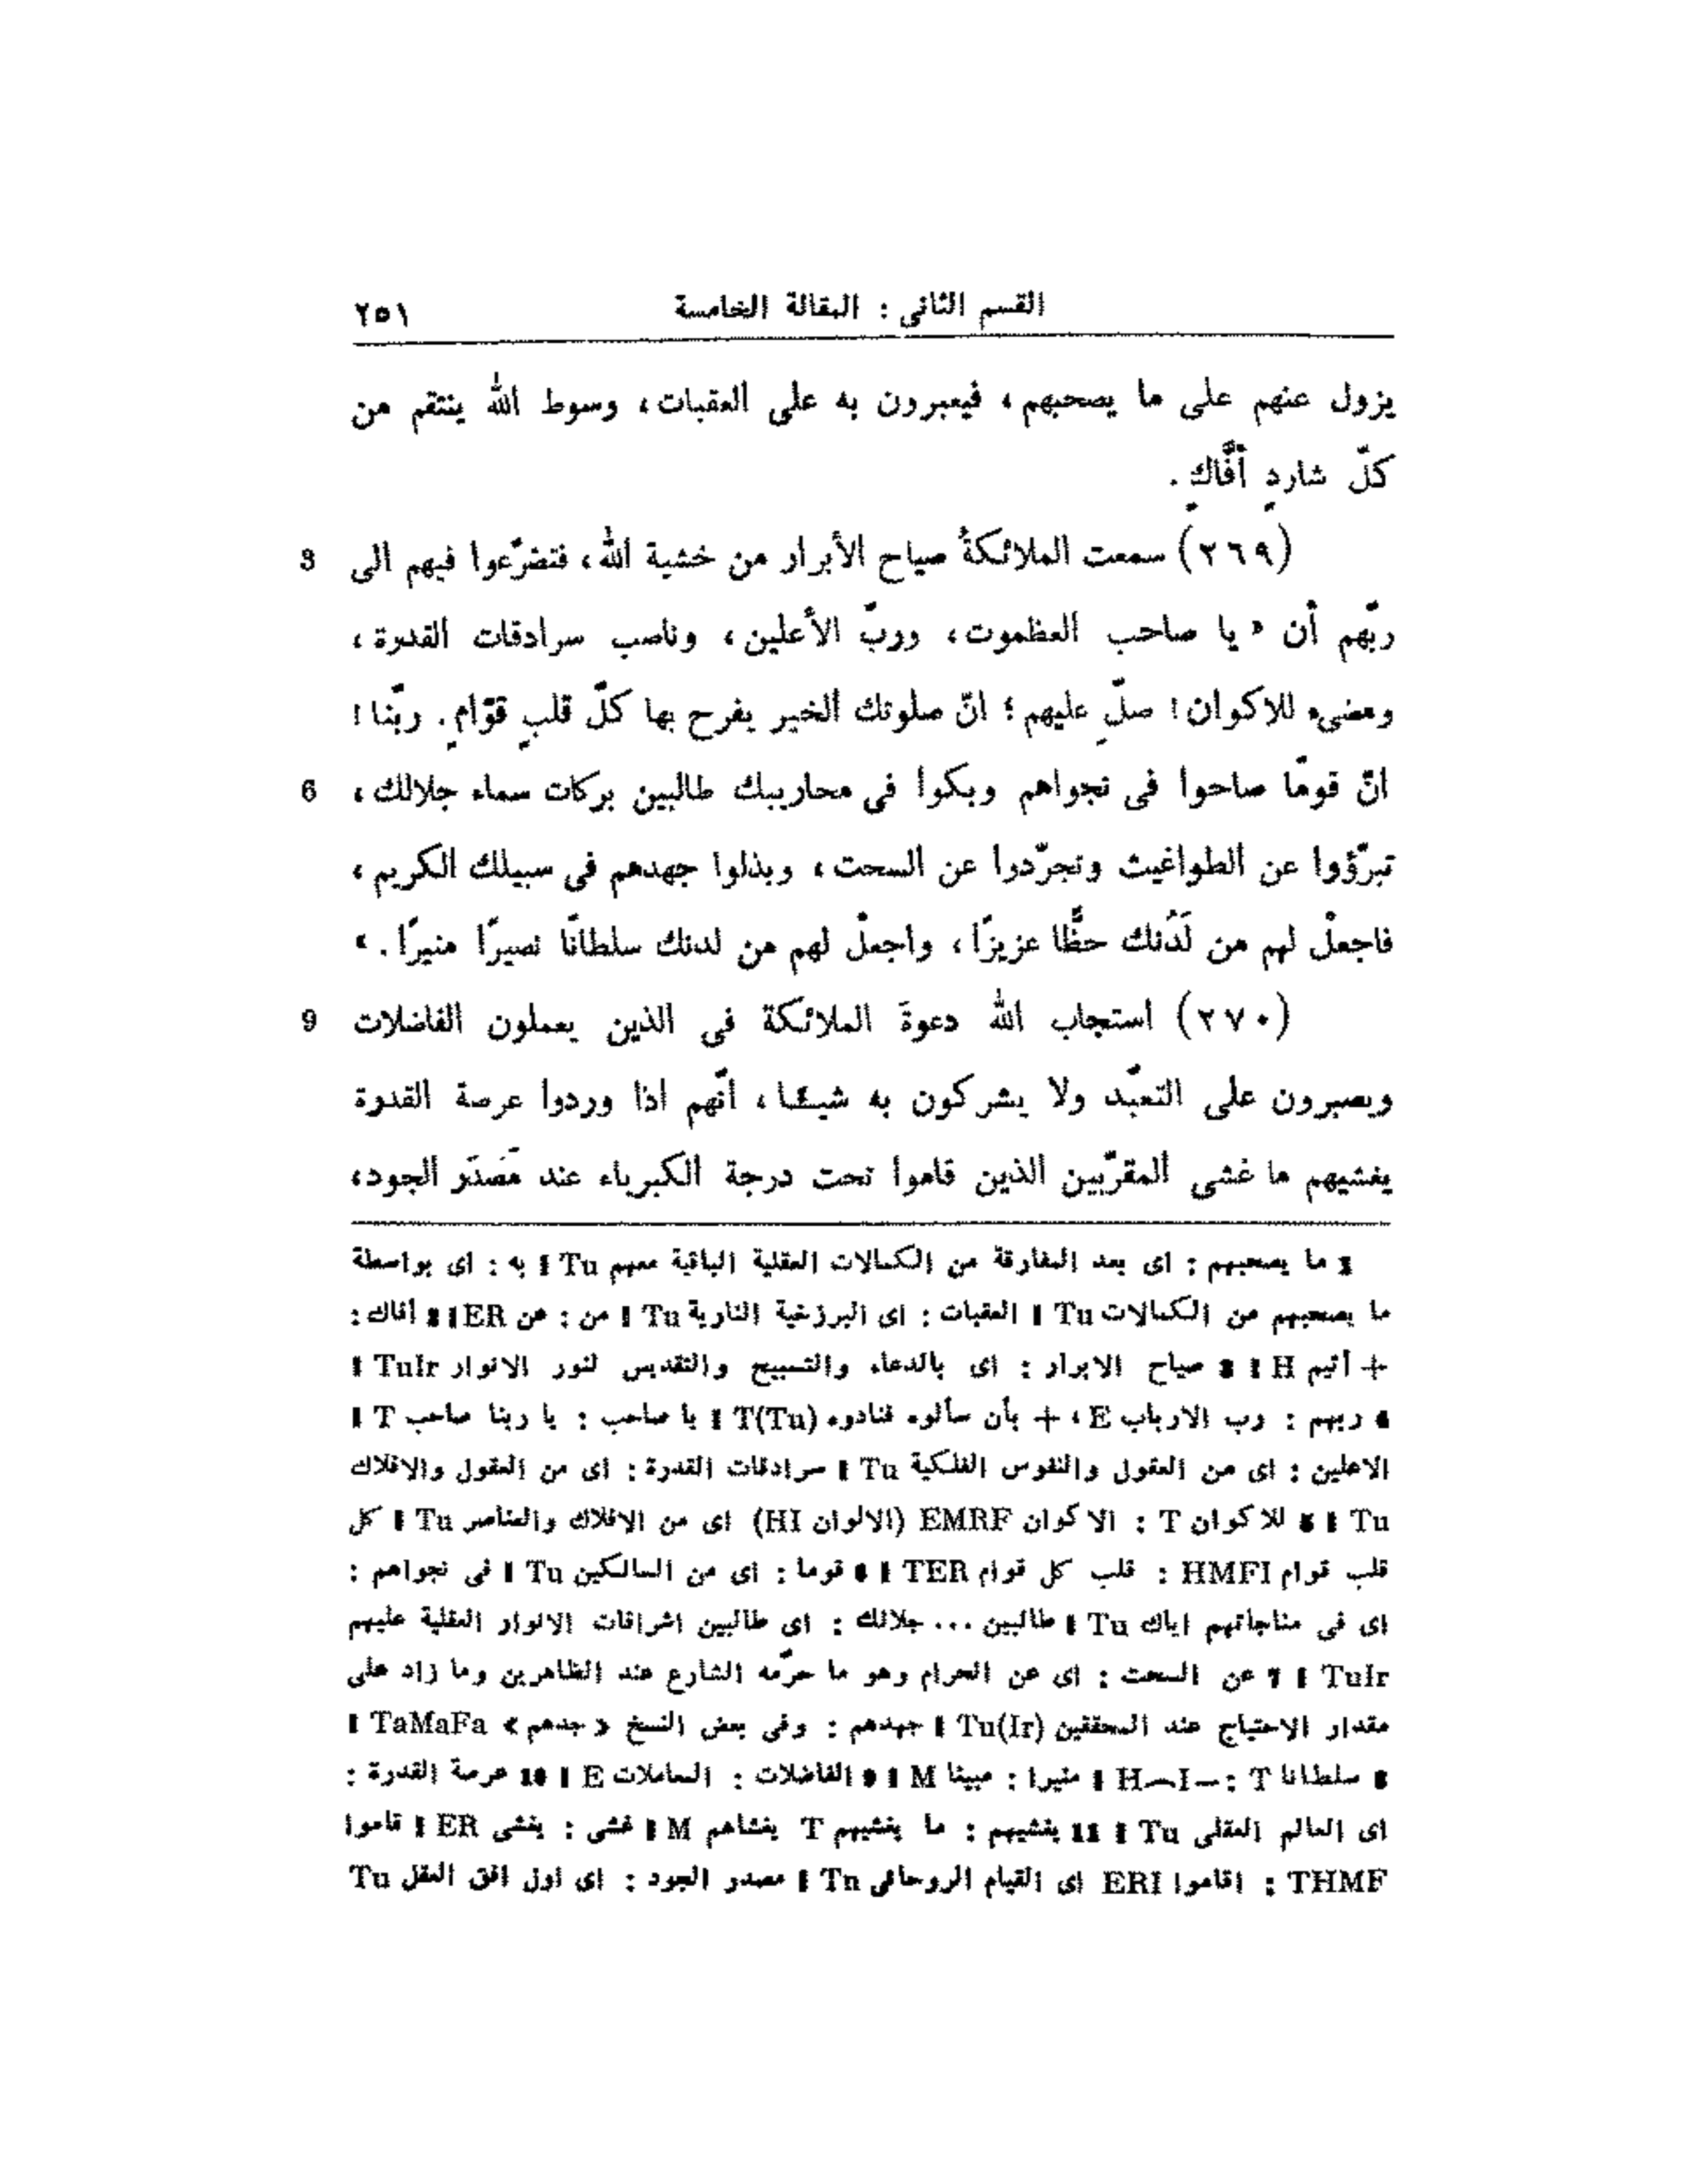 القسم الثانى : المقالة الخامسة ٢٥١
يزول عنهم على ما يصحبهم ، فيعبرون به على العقبات ، وسوط اللّٰه ينتقم من
كلّ شاردٍ أفّاكٍ .
(٢٦٩) سمعت الملائكةُ صياح الأبرار من خشية اللّٰه ، فتضرّعوا فيهم الى 3
ربّهم أن « يا صاحب العظموت ، وربّ الأعلين ، وناصب سرادقات القدرة ،
ومضىء للاكوان ! صلّ عليهم ؛ انّ صلوتك الخير يفرح بها كلّ قلبٍ قوّامٍ . ربّنا !
انّ قومًا صاحوا فى نجواهم وبكوا فى محاريبك طالبين بركات سماء جلالك ، 6
تبرّؤوا عن الطواغيت وتجرّدوا عن السحت ، وبذلوا جهدهم فى سبيلك الكريم ،
فاجعلْ لهم من لَدُنك حظًّا عزيزًا ، واجعلْ لهم من لدنك سلطانًا نصيرًا منيرًا . »
(٢٧٠) استجاب اللّٰه دعوةَ الملائكة فى الذين يعملون الفاضلات 9
ويصبرون على التعبّد ولا يشركون به شيئا ، انّهم اذا وردوا عرصة القدرة
يغشيهم ما غشى المقرّبين الذين قاموا تحت درجة الكبرياء عند مَصْدَر الجود ،
1 ما يصحبهم : اى بعد المفارقة من الكمالات العقلية الباقية معهم Tu ‖ به : اى بواسطة
ما يصحبهم من الكمالات Tu ‖ العقبات : اى البرزخية النارية Tu ‖ من : عن ER ‖ 2 أفاك :
+ أثيم H ‖ 3 صياح الابرار : اى بالدعاء والتسبيح والتقديس لنور الانوار TuIr ‖
4 ربهم : رب الارباب E ، + بأن سألوه فنادوه T(Tu) ‖ يا صاحب : يا ربنا صاحب T ‖
الاعلين : اى من العقول والنفوس الفلكية Tu ‖ سرادقات القدرة : اى من العقول والافلاك
Tu ‖ 5 للاكوان T : الاكوان EMRF (الالوان HI) اى من الافلاك والعناصر Tu ‖ كل
قلب قوام HMFI : قلب كل قوام TER ‖ 6 قوما : اى من السالكين Tu ‖ فى نجواهم :
اى فى مناجاتهم اياك Tu ‖ طالبين ... جلالك : اى طالبين اشراقات الانوار العقلية عليهم
TuIr ‖ 7 عن السحت : اى عن الحرام وهو ما حرّمه الشارع عند الظاهرين وما زاد على
مقدار الاحتياج عند المحققين Tu(Ir) ‖ جهدهم : وفى بعض النسخ « جدهم » TaMaFa ‖
8 سلطانا T : –H—I ‖ منيرا : مبينا M ‖ 9 الفاضلات : العاملات E ‖ 10 عرصة القدرة :
اى العالم العقلى Tu ‖ 11 يغشيهم : ما يغشيهم T يغشاهم M ‖ غشى : يغشى ER ‖ قاموا
THMF : اقاموا ERI اى القيام الروحانى Tu ‖ مصدر الجود : اى اول افق العقل Tu